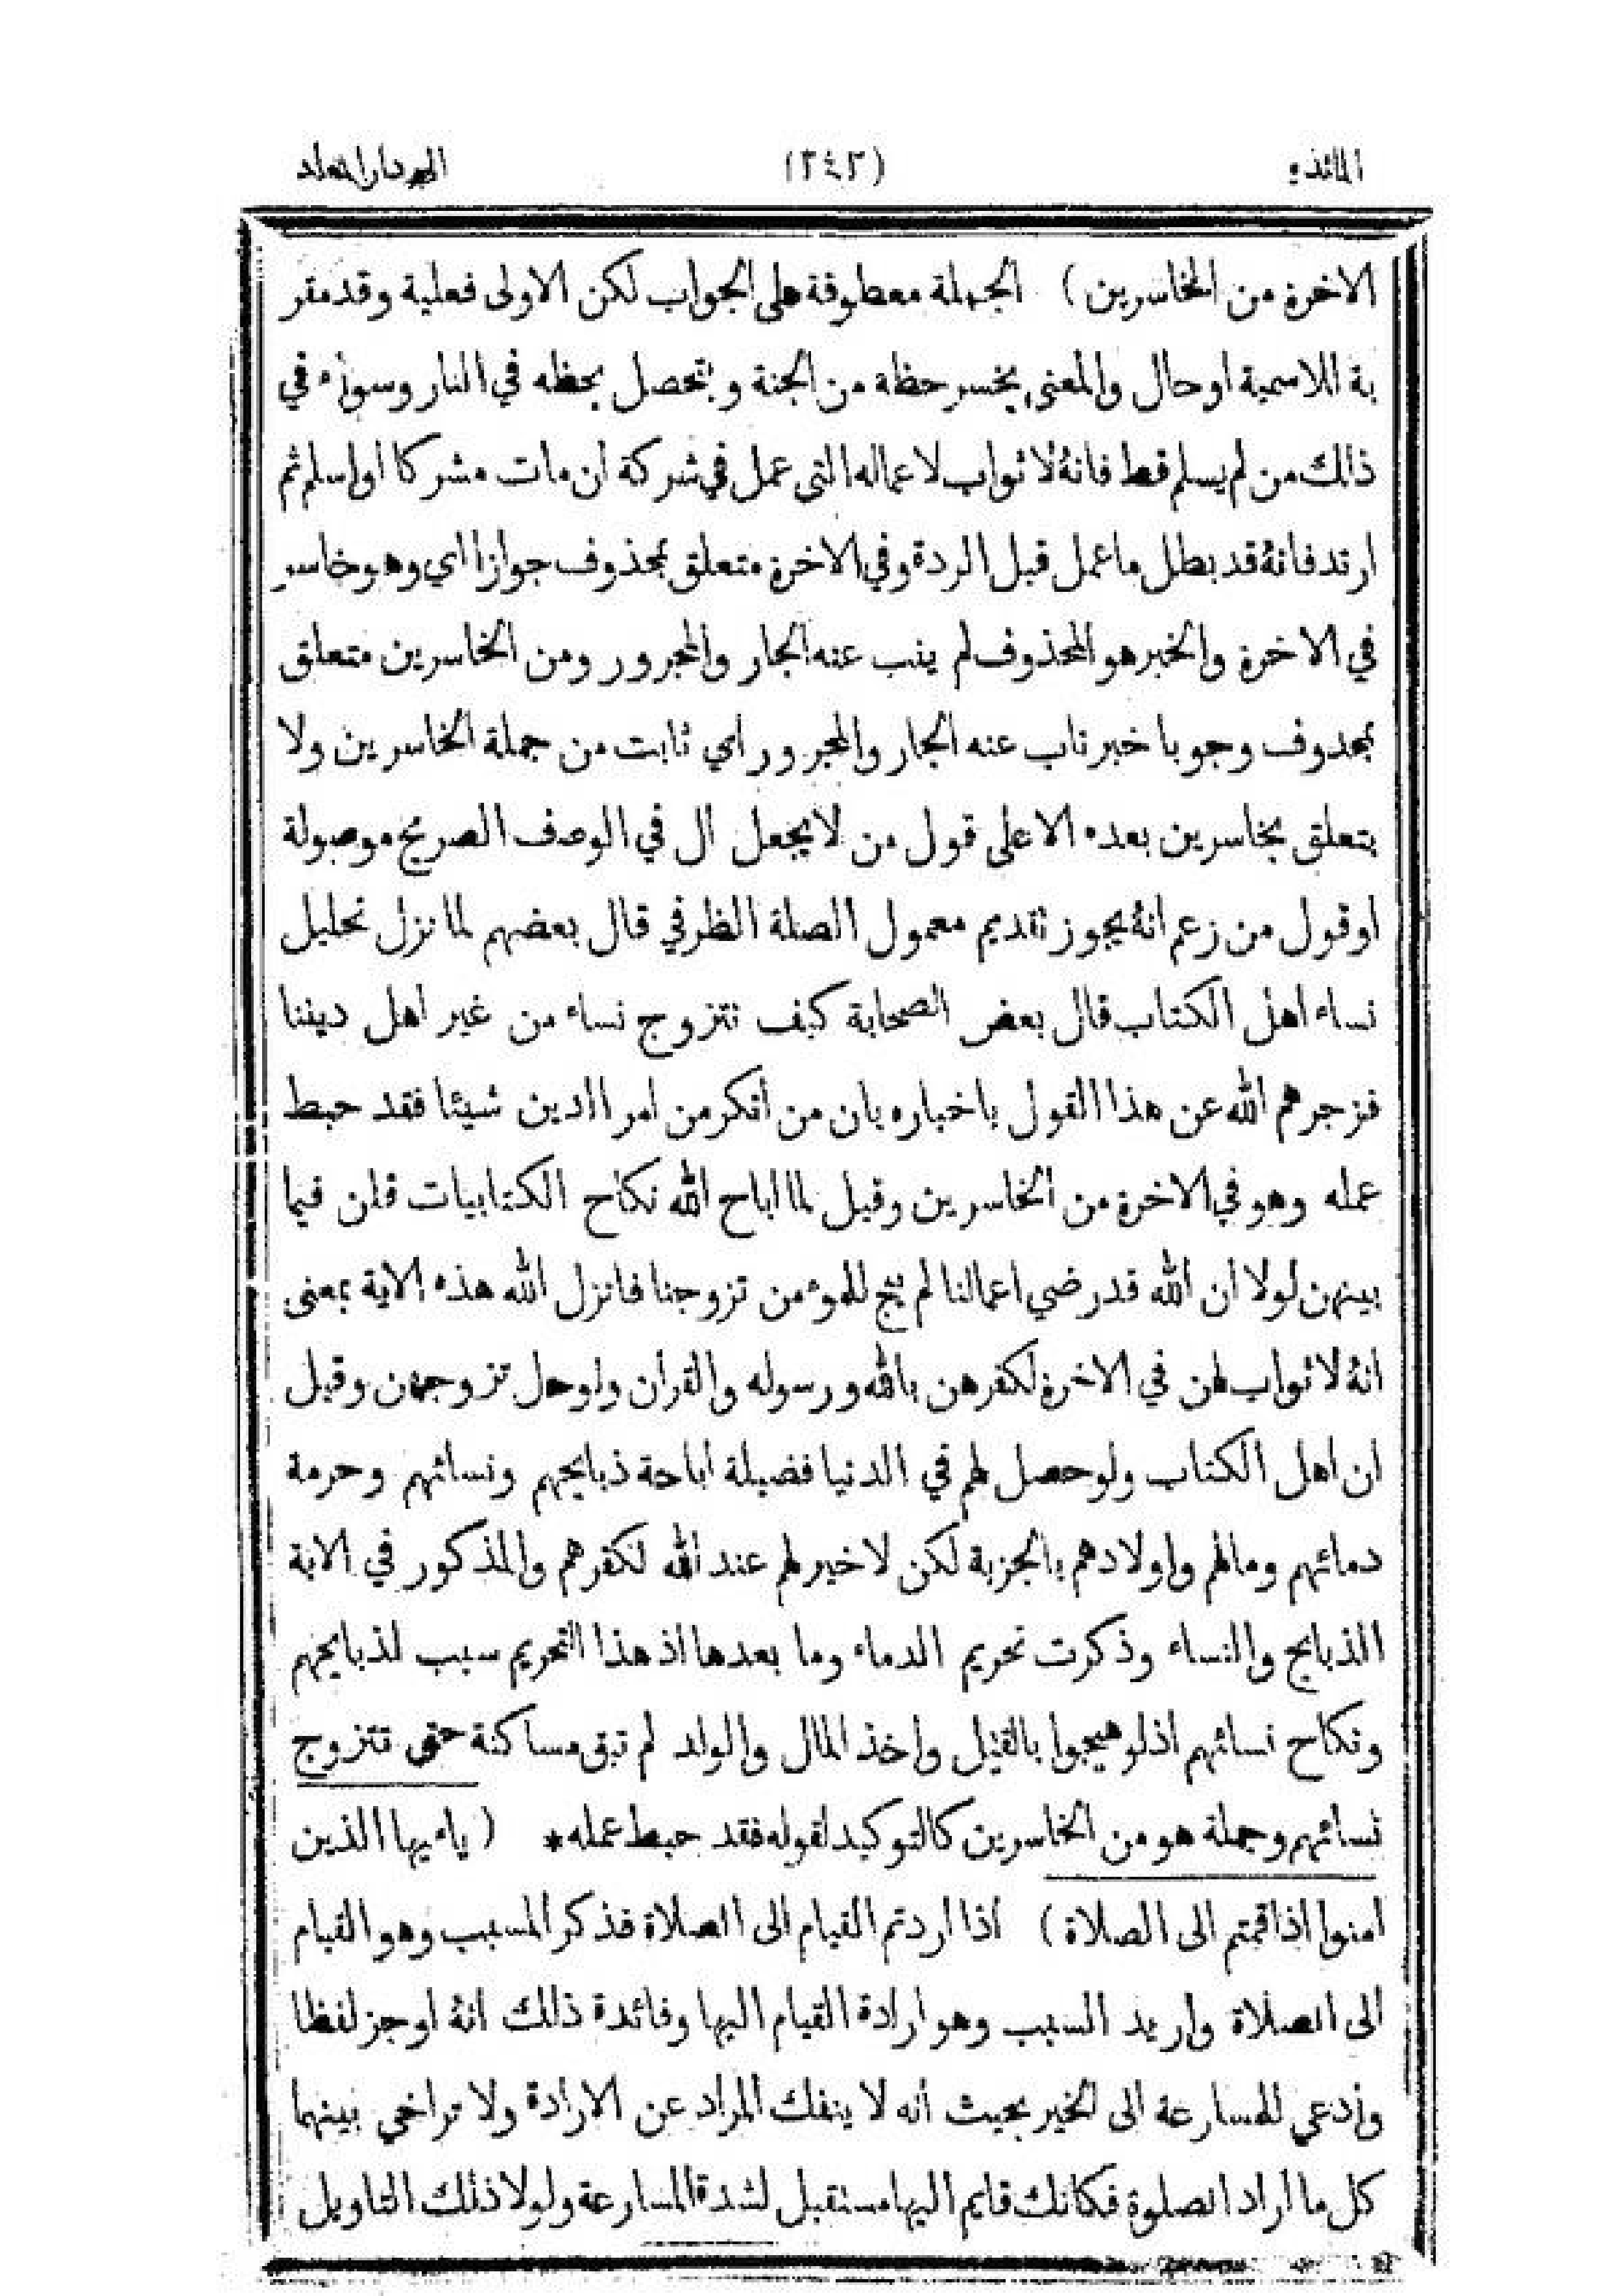 المائدة (٢٤٢)
الاخرة من الخاسرين) الجملة معطوفة على الجواب لكن الاولى فعلية وقد مقر
بة الاسمية او حال والمعنى يخسر حظه من الجنة و يتحصل بحظه في النار وسواء في
ذالك من لم يسلم قط فانهُ لا ثواب لاعماله التى عمل في شركة ان مات مشركا او اسلم ثم
ارتد فانهُ قد بطل ما عمل قبل الردة وفي الاخرة متعلق بمحذوف جوازا اي وهو خاسر
في الاخرة والخبر هو المحذوف لم ينب عنه الجار والمجرور ومن الخاسرين متعلق
بمحذوف وجوبا خبر ناب عنه الجار والمجرور اي ثابت من جملة الخاسرين ولا
يتعلق بخاسرين بعده الا على قول من لا يجعل ال في الوصف الصريح موصولة
او قول من زعم انهُ يجوز تقديم معمول الصلة الظرفي قال بعضهم لما نزل تحليل
نساء اهل الكتاب قال بعض الصحابة كيف نتزوج نساء من غير اهل ديننا
فزجرهم الله عن هذا القول باخباره بان من أنكر من امر الدين شيئا فقد حبط
عمله وهو في الاخرة من الخاسرين وقيل لما اباح الله نكاح الكتابيات قلن فيما
بينهن لولا ان الله قد رضي اعمالنا لم يبح للموءمن تزوجنا فانزل الله هذه الاية بمعنى
انهُ لا ثواب لهن في الاخرة لكفرهن بالله ورسوله والقران ولو حل تزوجهن وقيل
ان اهل الكتاب ولو حصل لهم في الدنيا فضيلة اباحة ذبايحهم ونسائهم وحرمة
دمائهم ومالهم واولادهم بالجزية لكن لا خير لهم عند الله لكفرهم والمذكور في الاية
الذبايح والنساء وذكرت تحريم الدماء وما بعدها اذ هذا التحريم سبب لذبايحهم
ونكاح نسائهم اذ لو هيجوا بالقتل واخذ المال والولد لم تبق مساكنة حتى تتزوج
نسائهم وجملة هو من الخاسرين كالتوكيد لقوله فقد حبط عمله* (ياءيها الذين
امنوا اذا قمتم الى الصلاة) اذا اردتم القيام الى الصلاة فذكر المسبب وهو القيام
الى الصلاة واريد السبب وهو ارادة القيام اليها وفائدة ذالك انهُ اوجز لفظا
وادعى للمسارعة الى الخير بحيث أنه لا ينفك المراد عن الارادة ولا تراخي بينهما
كل ما اراد الصلوة فكانك قايم اليها مستقبل لشدة المسارعة ولولا ذلك التاويل